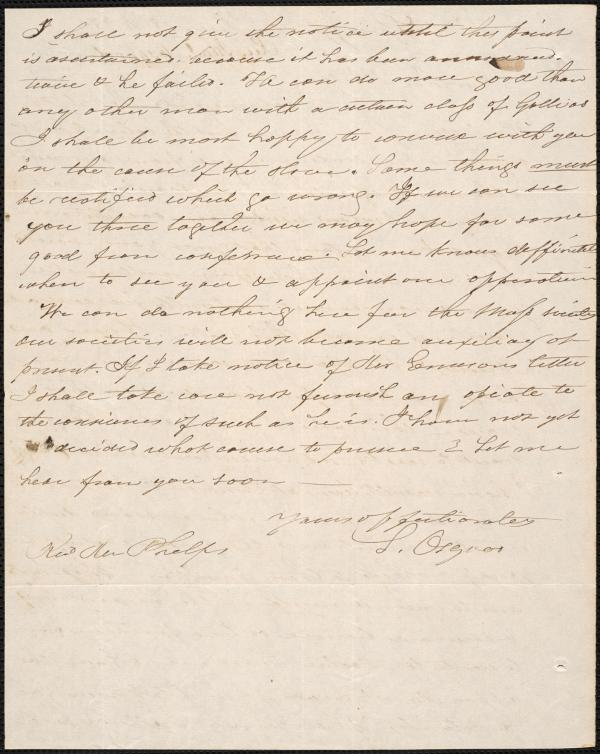 I shall not give the notice until this point
is ascertained. because it has been announced.
twice & he failed. He can do more good than
any other man with a certain class of
I shall be most happy to convene with you
on the cause of the slave. Some things must
be rectified which go wrong. If we can see
you three together we may hope for some
good from conference. Let me know deffinitely
when to see you & appoint our opperation
We can do nothing here for the Mass society
our societies will not become auxiliary at
present. If I take notice of Mr Emersons letter
I shall take care not furnish an opiate to
the consciences of such as he is. I have not yet
decided what course to pursue & Let me
hear from you soon
Yours affectionately
S. Osgood
Rev Mr Phelps